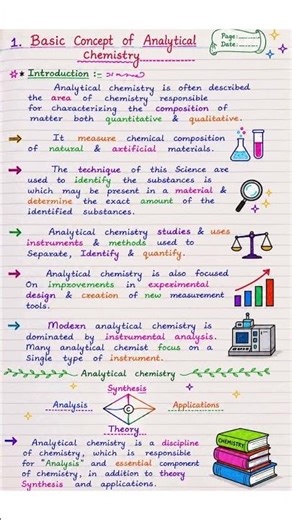 Page:
Date:
1. Basic Concept of Analytical
Chemistry
* Introduction :-
Analytical chemistry is often described
the area of chemistry responsible
for characterizing the composition of
matter both quantitative & qualitative.
→ It measure chemical composition
of natural & artificial materials.
→ The technique of this Science are
used to identify the substances is
which may be present in a material &
determine the exact amount of the
identified substances.
→ Analytical chemistry studies & uses
instruments & methods used to
Separate, Identify & quantify.
→ Analytical chemistry is also focused
On improvements in experimental
design & creation of new measurement
tools.
→ Modern analytical chemistry is
dominated by instrumental analysis.
Many analytical chemist focus on a
Single type of instrument.
Analytical chemistry
Synthesis
Analysis C Applications
Theory
→ Analytical chemistry is a discipline
of chemistry, which is responsible
for "Analysis" and essential component
of chemistry, in addition to theory
Synthesis and applications.
CHEMISTRY